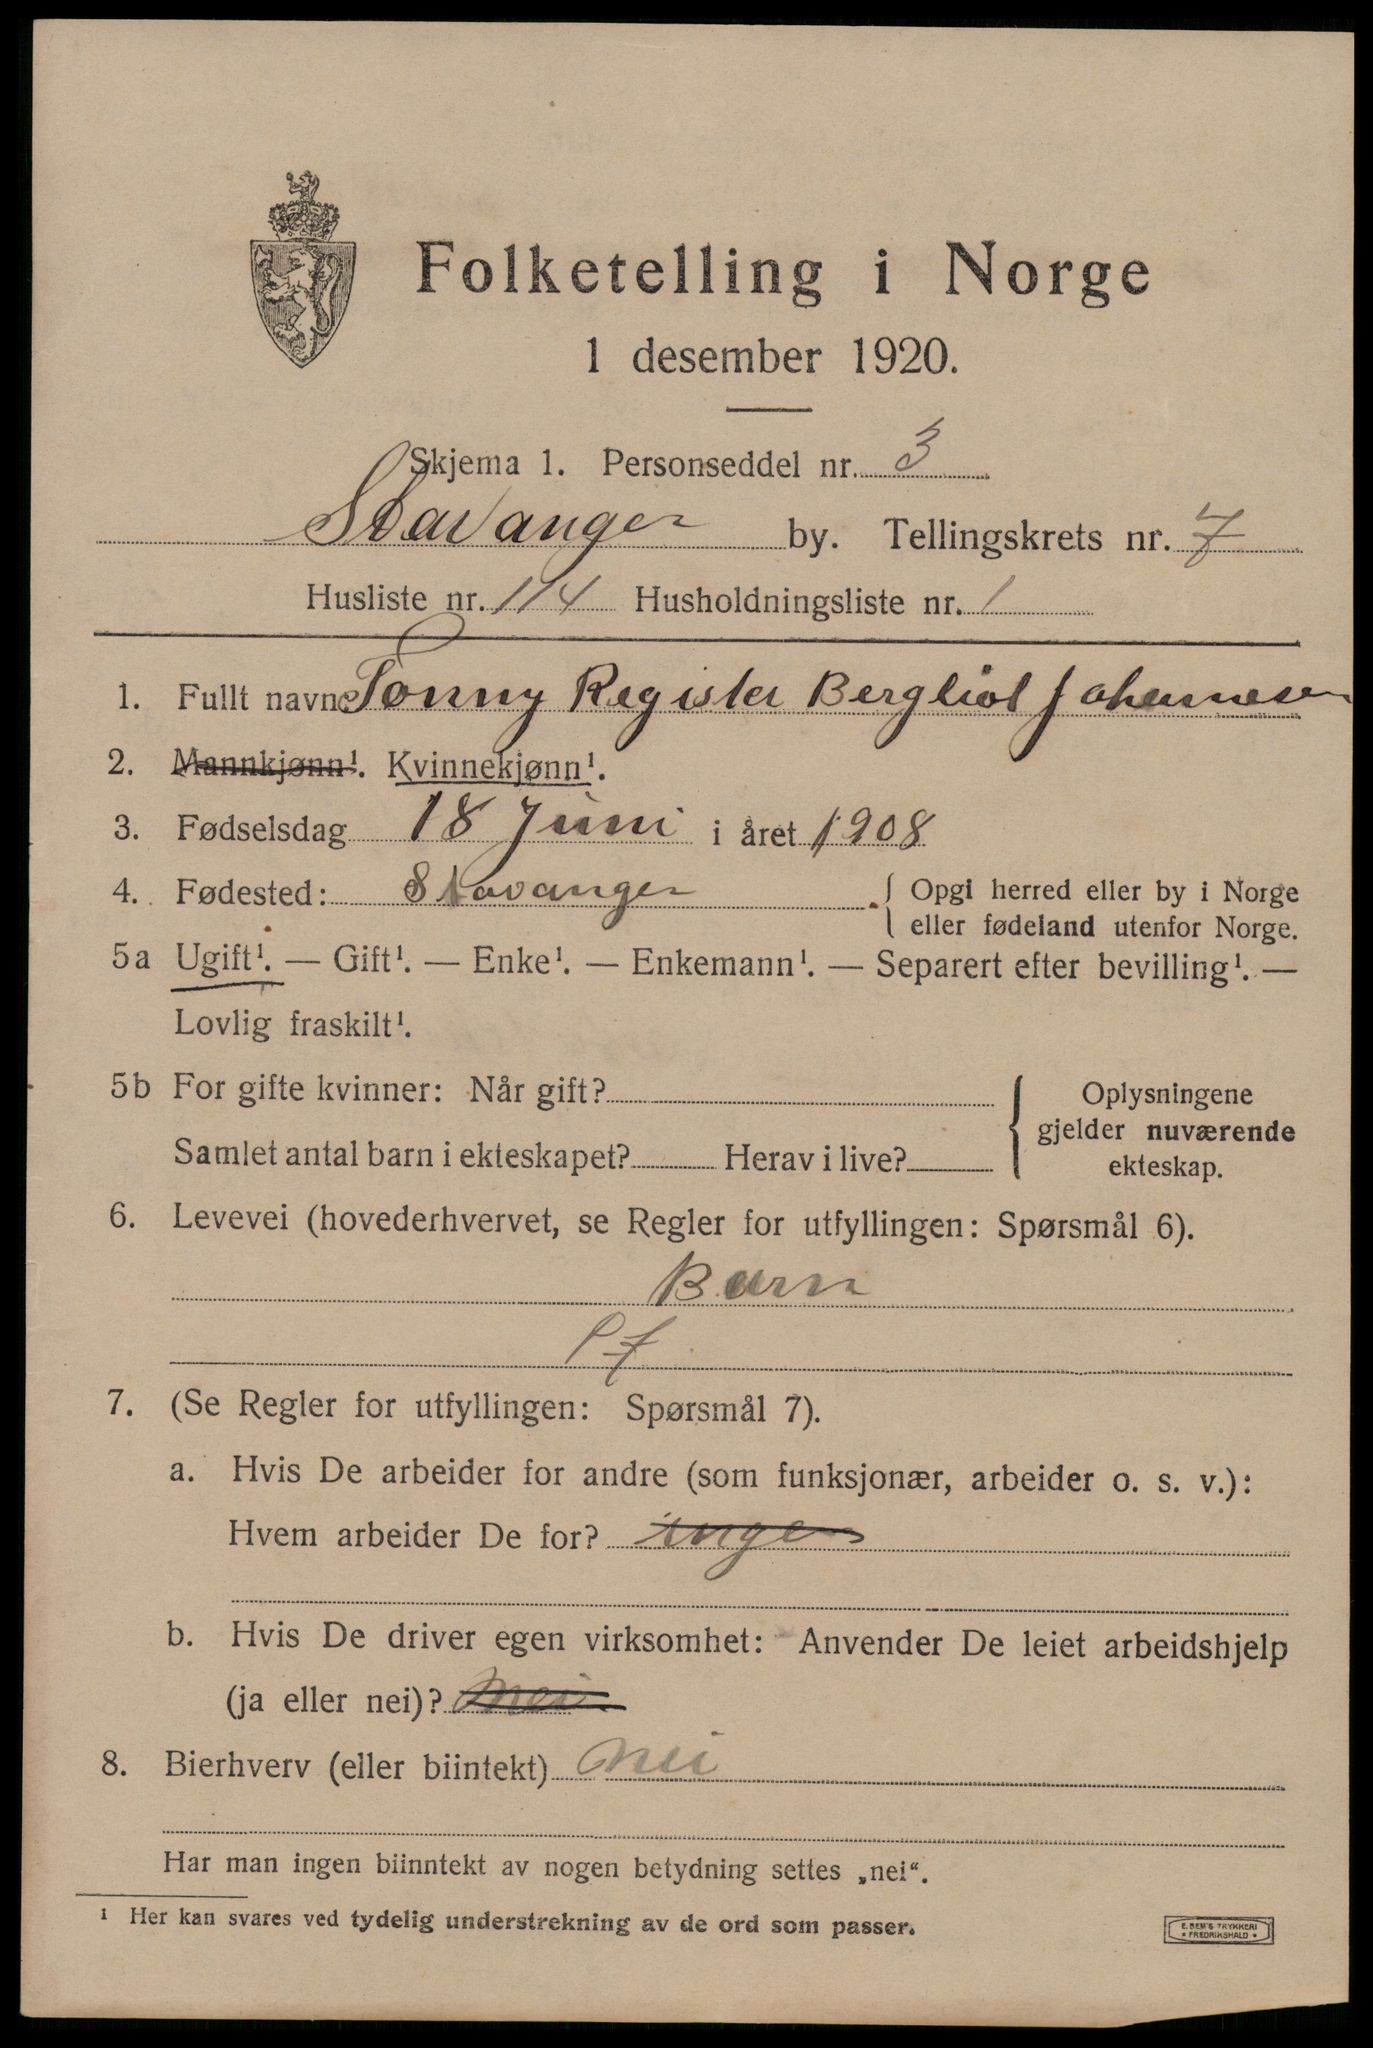 Folketelling i Norge
1 desember 1920.
Skjema 1. Personseddel nr. 3
Stavanger by. Tellingskrets nr. 7
Husliste nr. 114 Husholdningsliste nr. 1
1. Fullt navn: Tonny Register Bergliot Johannesen
2. Mannkjønn¹. Kvinnekjønn¹.
3. Fødselsdag 18 Juni i året 1908
4. Fødested: Stavanger { Opgi herred eller by i Norge
eller fødeland utenfor Norge.
5a Ugift¹. — Gift¹. — Enke¹. — Enkemann¹. — Separert efter bevilling¹. —
Lovlig fraskilt¹.
5b For gifte kvinner: Når gift? { Oplysningene
gjelder nuværende
Samlet antal barn i ekteskapet? Herav i live? ekteskap.
6. Levevei (hovederhvervet, se Regler for utfyllingen: Spørsmål 6).
Barn
P7
7. (Se Regler for utfyllingen: Spørsmål 7).
a. Hvis De arbeider for andre (som funksjonær, arbeider o. s. v.):
Hvem arbeider De for? ingen
b. Hvis De driver egen virksomhet: Anvender De leiet arbeidshjelp
(ja eller nei)? Nei
8. Bierhverv (eller biintekt) Nei
Har man ingen biinntekt av nogen betydning settes „nei“.
¹ Her kan svares ved tydelig understrekning av de ord som passer.
E. SEM'S TRYKKERI
* FREDRIKSHALD *